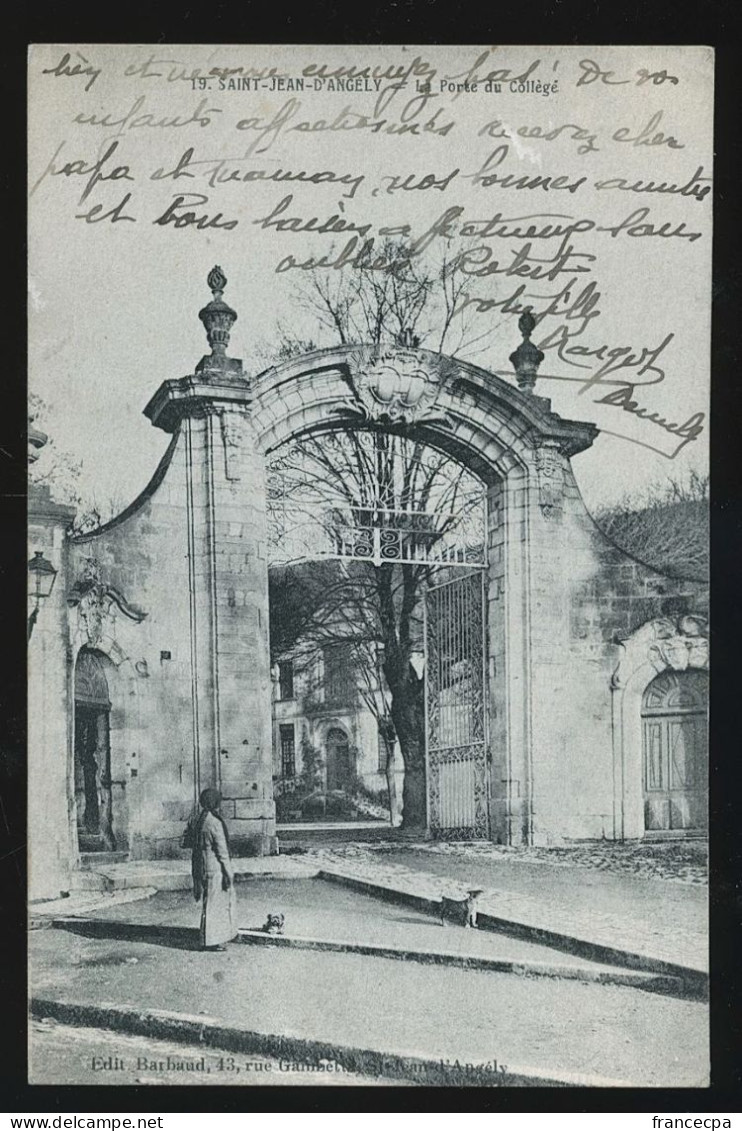 bien et ne vous ennuyez pas! De vos
19. SAINT-JEAN-D'ANGÉLY — La Porte du Collège
enfants affectionnés recevez cher
papa et maman, nos bonnes amitiés
et bons baisers affectueux sans
oublier Robert
Margot
Edit Barbaud, 43, rue Gambetta, St-Jean-d'Angély
francecpa
www.delcampe.net